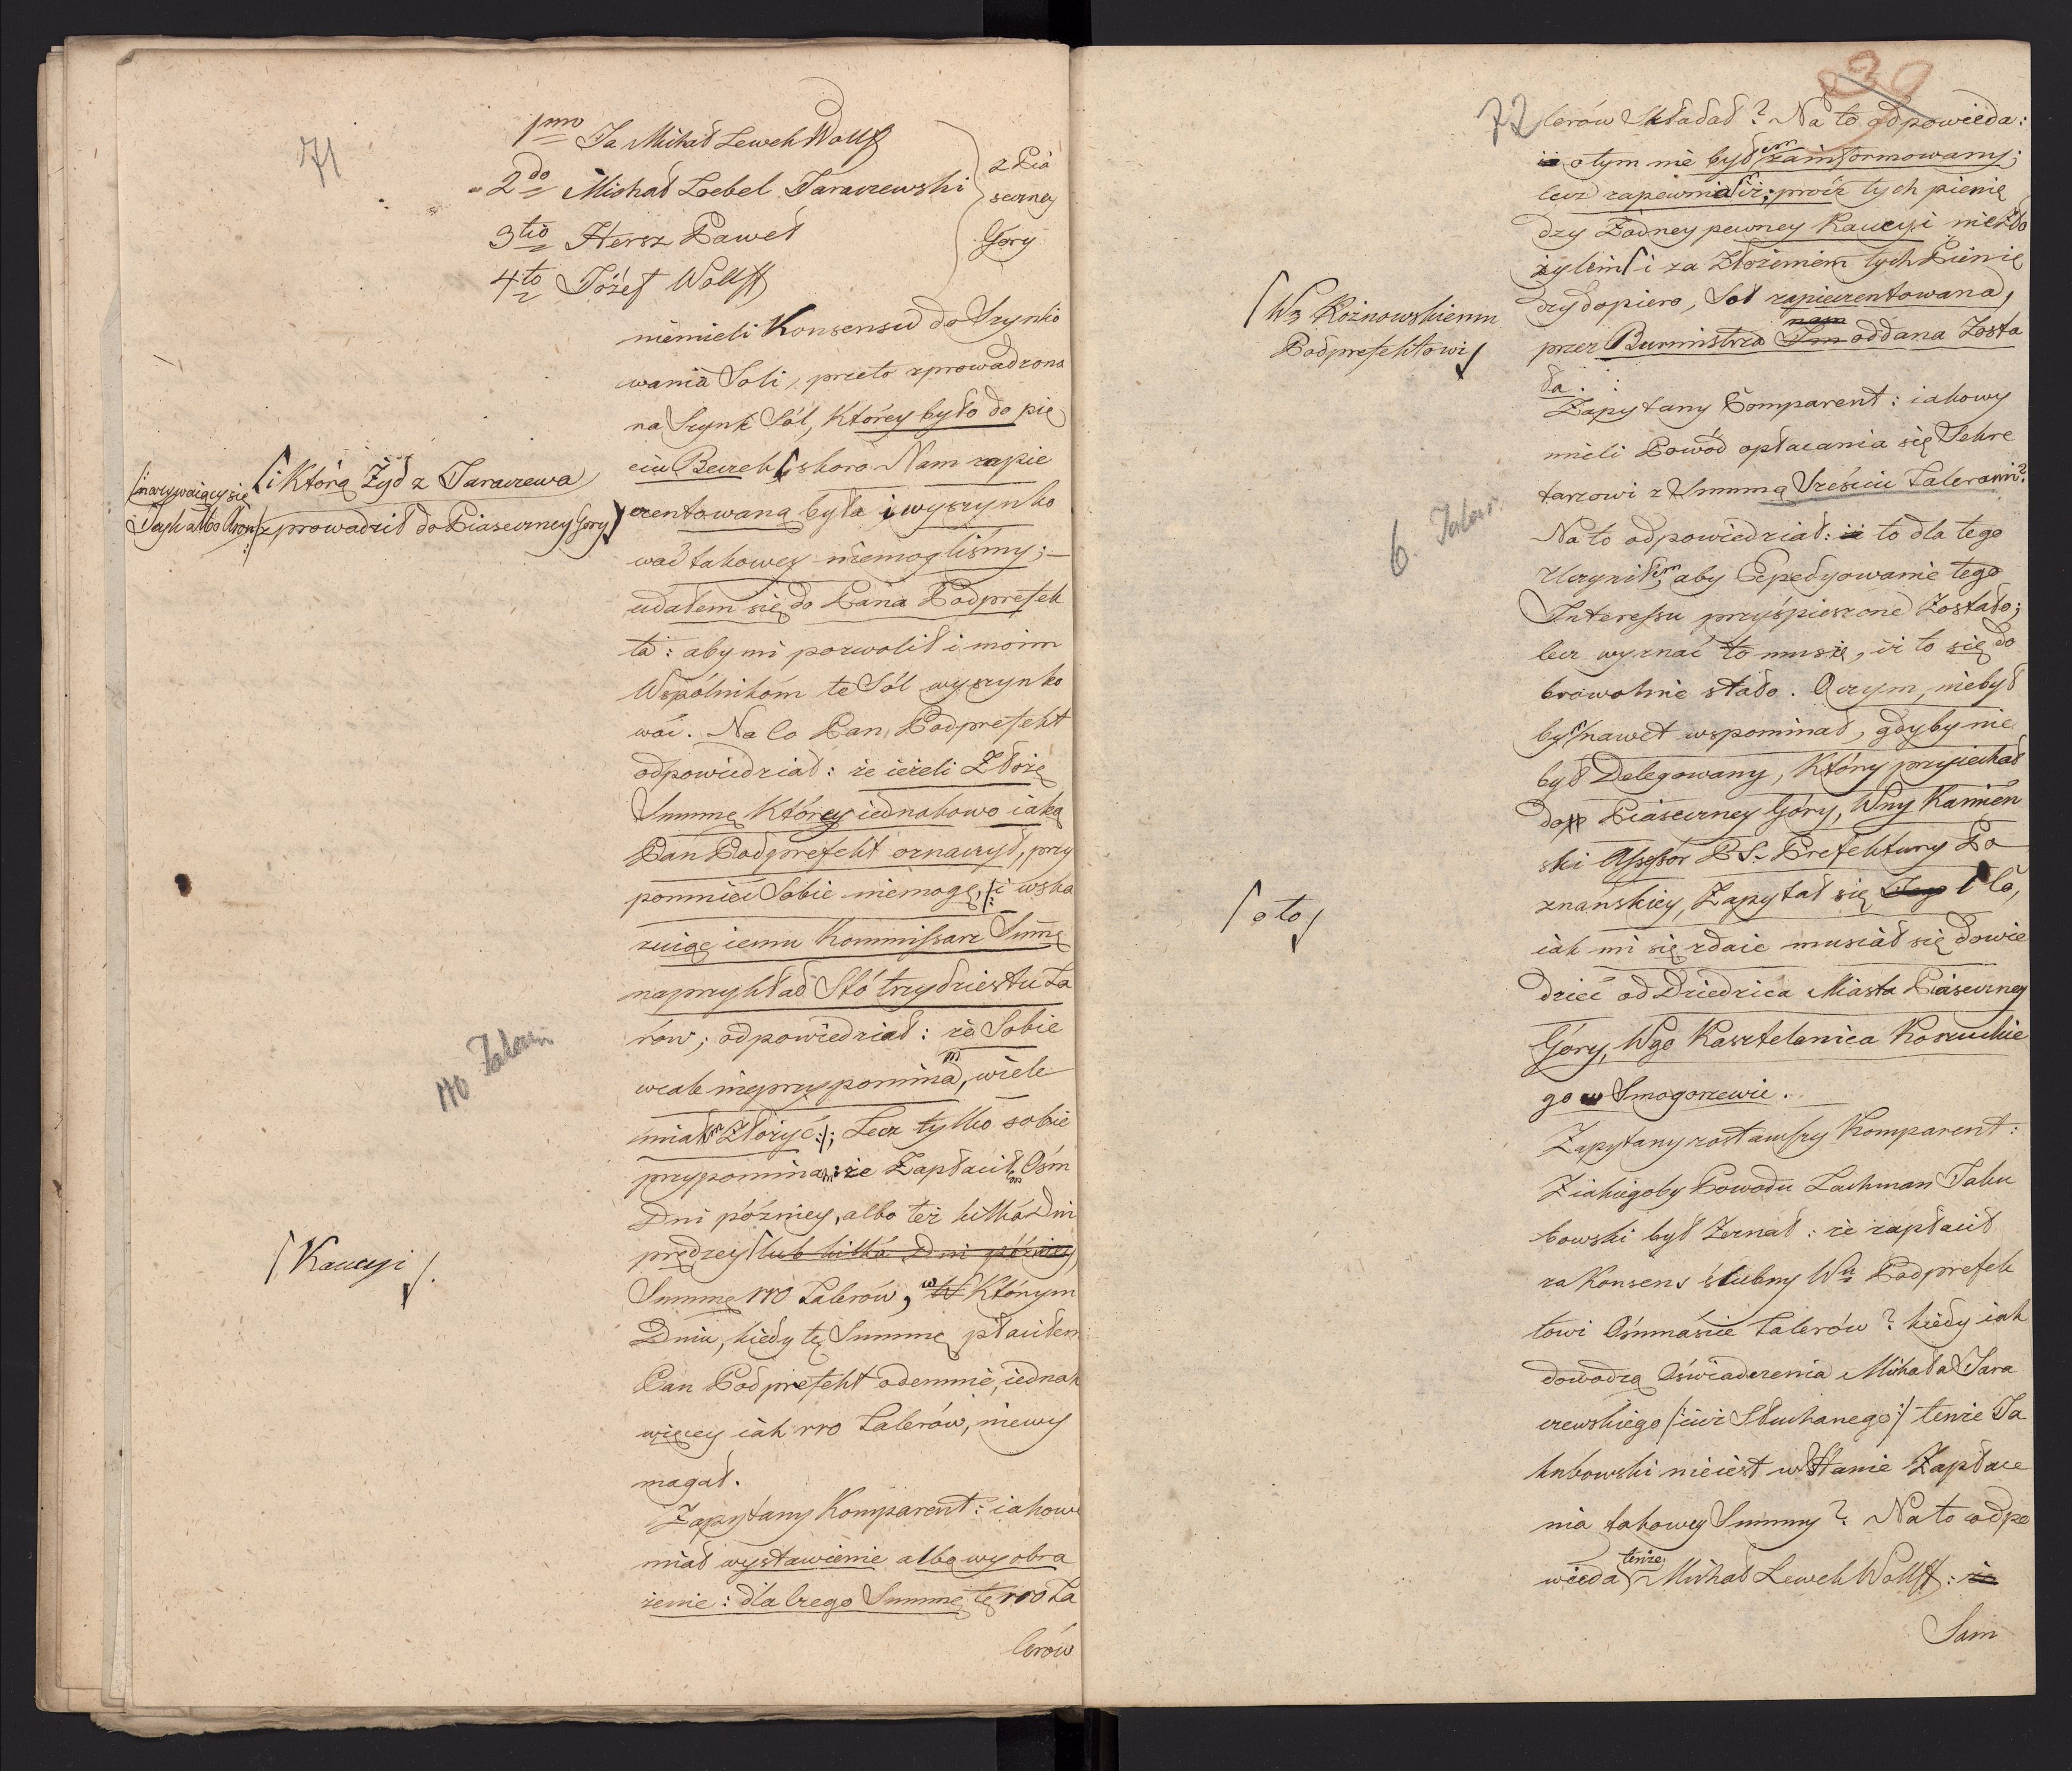 71
1mo Ja Michał Lewek Wolff
2do Michał Loebel Jaraczewski
3tio Hersz Paweł
4to Józef Wolff
z Pia
seczney
Gory
niemieli Konsensu do Szynko
wania Soli, przeto sprowadzona
na Szynk Sól, którey było do pię
ciu Beczek, skoro Nam zapie
czentowaną była i wyszynko
wać takowey niemogliśmy;
udałem się do Pana Podprefek
ta: aby mi pozwolił i moim
Wspólnikom te Sól wyszynko
wać. Na co Pan Podprefekt
odpowiedział: że ieżeli Złożę
Summę którey iednakowo iaką
Pan Podprefekt oznaczył, przy
pomnieć Sobie niemogę, /: i wska
zuiąc iemu Kommissarz Summę
naprzykład Sto trzydziestu Ta
rów; odpowiedział: że Sobie
wcale nieprzypominam, wiele
miałem Złożyć :/; Lecz tylko sobie
przypominam że Zapłaciłem Ośm
Dni pózniey, albo też kilka Dni
prędzey lub kilka Dni pózniey
Summę 110 Talerów, w Którym
Dniu, kiedy tę Summę płaciłem
Pan Podprefekt odemnie, iednak
więcey iak 110 Talerów, niewy
magał.
Zapytany Komparent: iakowe
miał wystawienie albo wyobra
żenie: dla czego Summę tę 110 Ta
lerów
/: nazywaiący się
Jayk albo Aron :/
i Którą Żyd z Jaraczewa
sprowadził do Piaseczney Gory
110 Taler.
Kaucyi
72
39
lerów Składał? Na to odpowieda:
iż o tym nie byłem zainformowany;
lecz zapewniał iż, prócz tych pienię
dzy Żadney pewney Kaucyi nie Zło
żyłem i za Złożeniem tych Pienię
dzy dopiero, Sol zapieczentowana,
przez Burmistrza Im nam oddana Zosta
ła.
Zapytany Komparent: iakowy
mieli Powód opłacania się Sekre
tarzowi z Summą Sześciu Talerami?
Na to odpowiedział: iż to dla tego
Uczyniłem, aby Expedyowanie tego
Interessu przyśpieszone Zostało;
lecz wyznać to muszę, iż to się do
browolnie stało. O czym niebył
bym nawet wspominał, gdyby nie
był Delegowany, Który przyiechał
do Piaseczney Góry, Wny Kamień
ski Assessor P. S. Prefektury Po
znańskiey, Zapytał się Iego Co,
iak mi się zdaie musiał się dowie
dzieć od Dziedzica Miasta Piaseczney
Góry, Wgo Kasztelanica Koszuckie
go w Smogorzewie.
Zapytany zostawszy Komparent:
Z iakiegoby Powodu Lachman Jaku
bowski był Zeznał: że zapłacił
za Konsens ślubny Wu Podprefek
towi Ośmnaście Talerów? kiedy iak
dowodzą Oświadczenia Michała Jara
czewskiego /: iuż Słuchanego :/ tenże Ja
kubowski nieiest w Stanie Zapłace
nia takowey Summy? Na to odpo
wieda tenże Michał Lewek Wolff: że
Sam
Wu Koznowskiemu
Podprefektowi
6. Taler.
o to